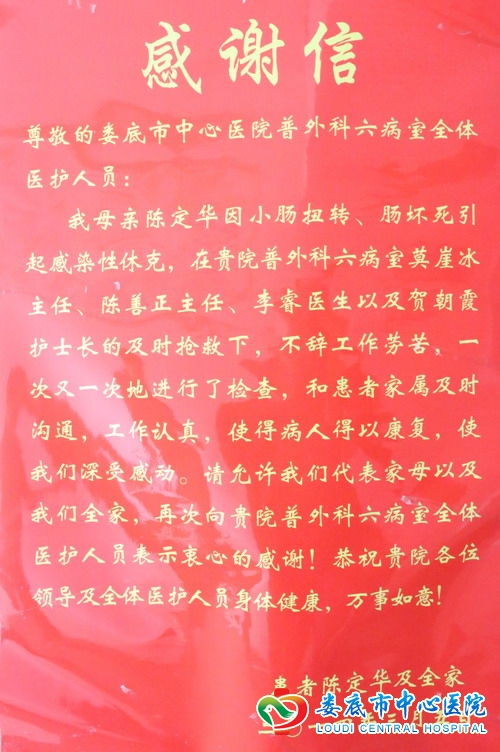 感谢信
尊敬的娄底市中心医院普外科六病室全体
医护人员：
我母亲陈定华因小肠扭转、肠坏死引
起感染性休克，在贵院普外科六病室莫崖冰
主任、陈善正主任、李睿医生以及贺朝霞
护士长的及时抢救下，不辞工作劳苦、一
次又一次地进行了检查，和患者家属及时
沟通，工作认真，使得病人得以康复，使
我们深受感动。请允许我们代表家母以及
我们全家，再次向贵院普外科六病室全体
医护人员表示衷心的感谢！恭祝贵院各位
领导及全体医护人员身体健康，万事如意！
患者陈定华及全家
娄底市中心医院
LOUDI CENTRAL HOSPITAL